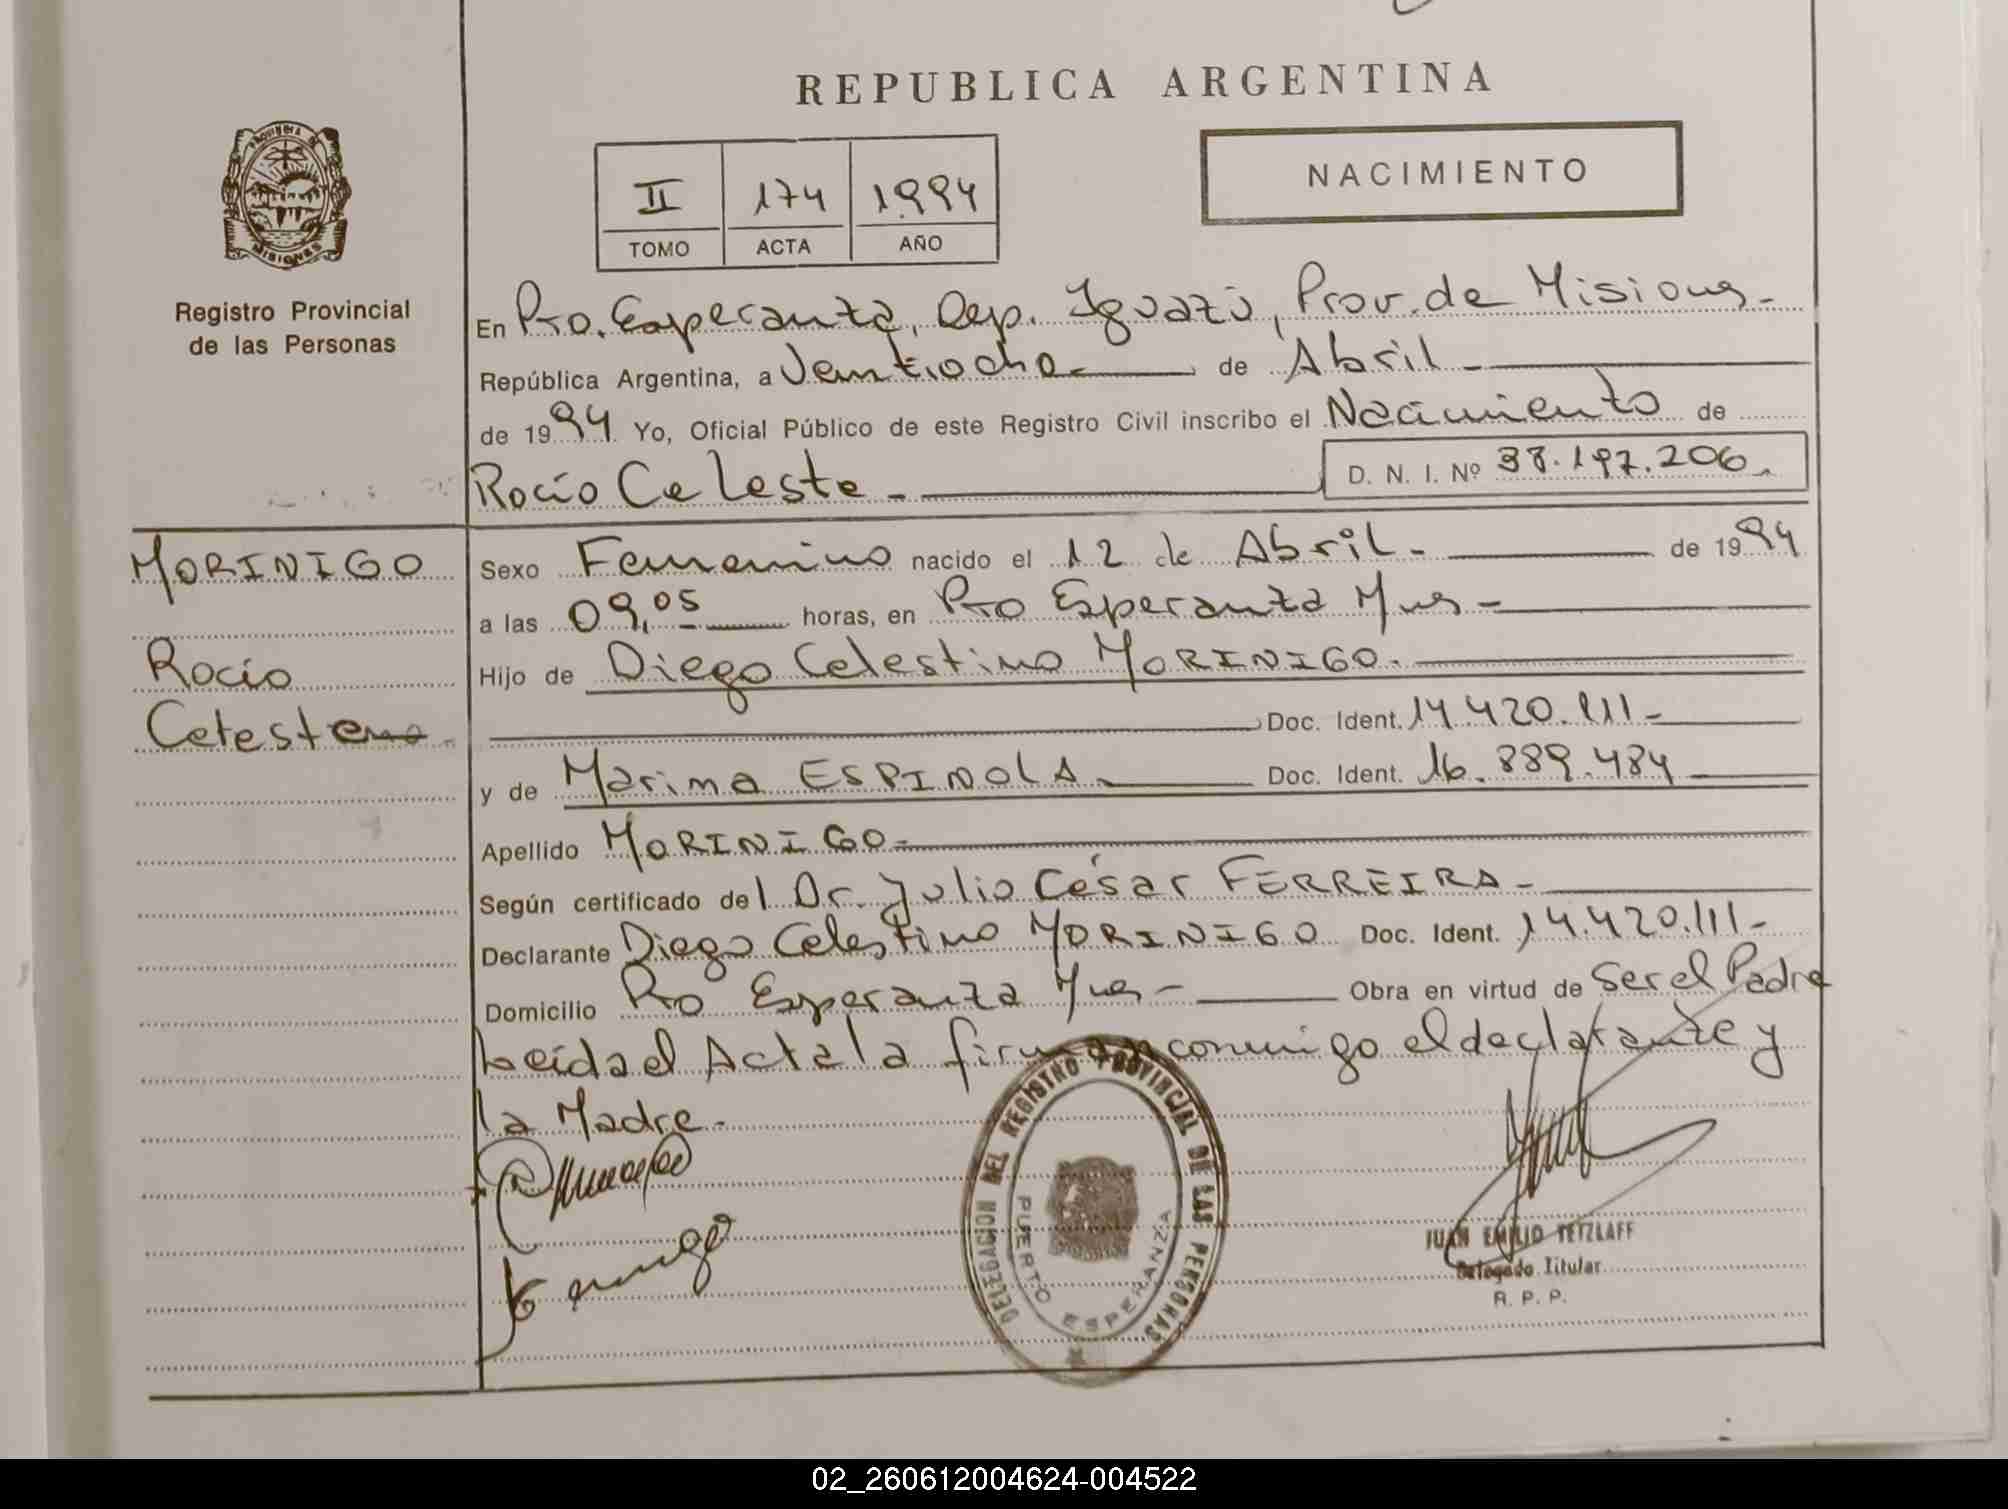 REPUBLICA ARGENTINA
PROVINCIA DE
MISIONES
Registro Provincial
de las Personas
II 174 1994
TOMO ACTA AÑO
NACIMIENTO
En Pto. Esperanza, Dep. Iguazú, Prov. de Misiones-
República Argentina, a Ventiocho- de Abril-
de 1994 Yo, Oficial Público de este Registro Civil inscribo el Nacimiento de
Rocío Celeste- D. N. I. Nº 38.197.206.
MORINIGO
Rocío
Celeste
Sexo Femenino nacido el 12 de Abril- de 1994
a las 09,05 horas, en Pto Esperanza Mnes-
Hijo de Diego Celestino MORINIGO.
Doc. Ident. 14.420.111-
y de Marina ESPINOLA- Doc. Ident. 16.889.484
Apellido MORINIGO-
Según certificado del Dr. Julio César FERREIRA-
Declarante Diego Celestino MORINIGO Doc. Ident. 14.420.111-
Domicilio Pto Esperanza Mnes- Obra en virtud de Ser el Padre
Leída el Acta la firman conmigo el declarante y
la Madre.
DELEGACION DEL REGISTRO PROVINCIAL DE LAS PERSONAS
PUERTO ESPERANZA
JUAN EMILIO TETZLAFF
Delegado Titular
R. P. P.
02_260612004624-004522